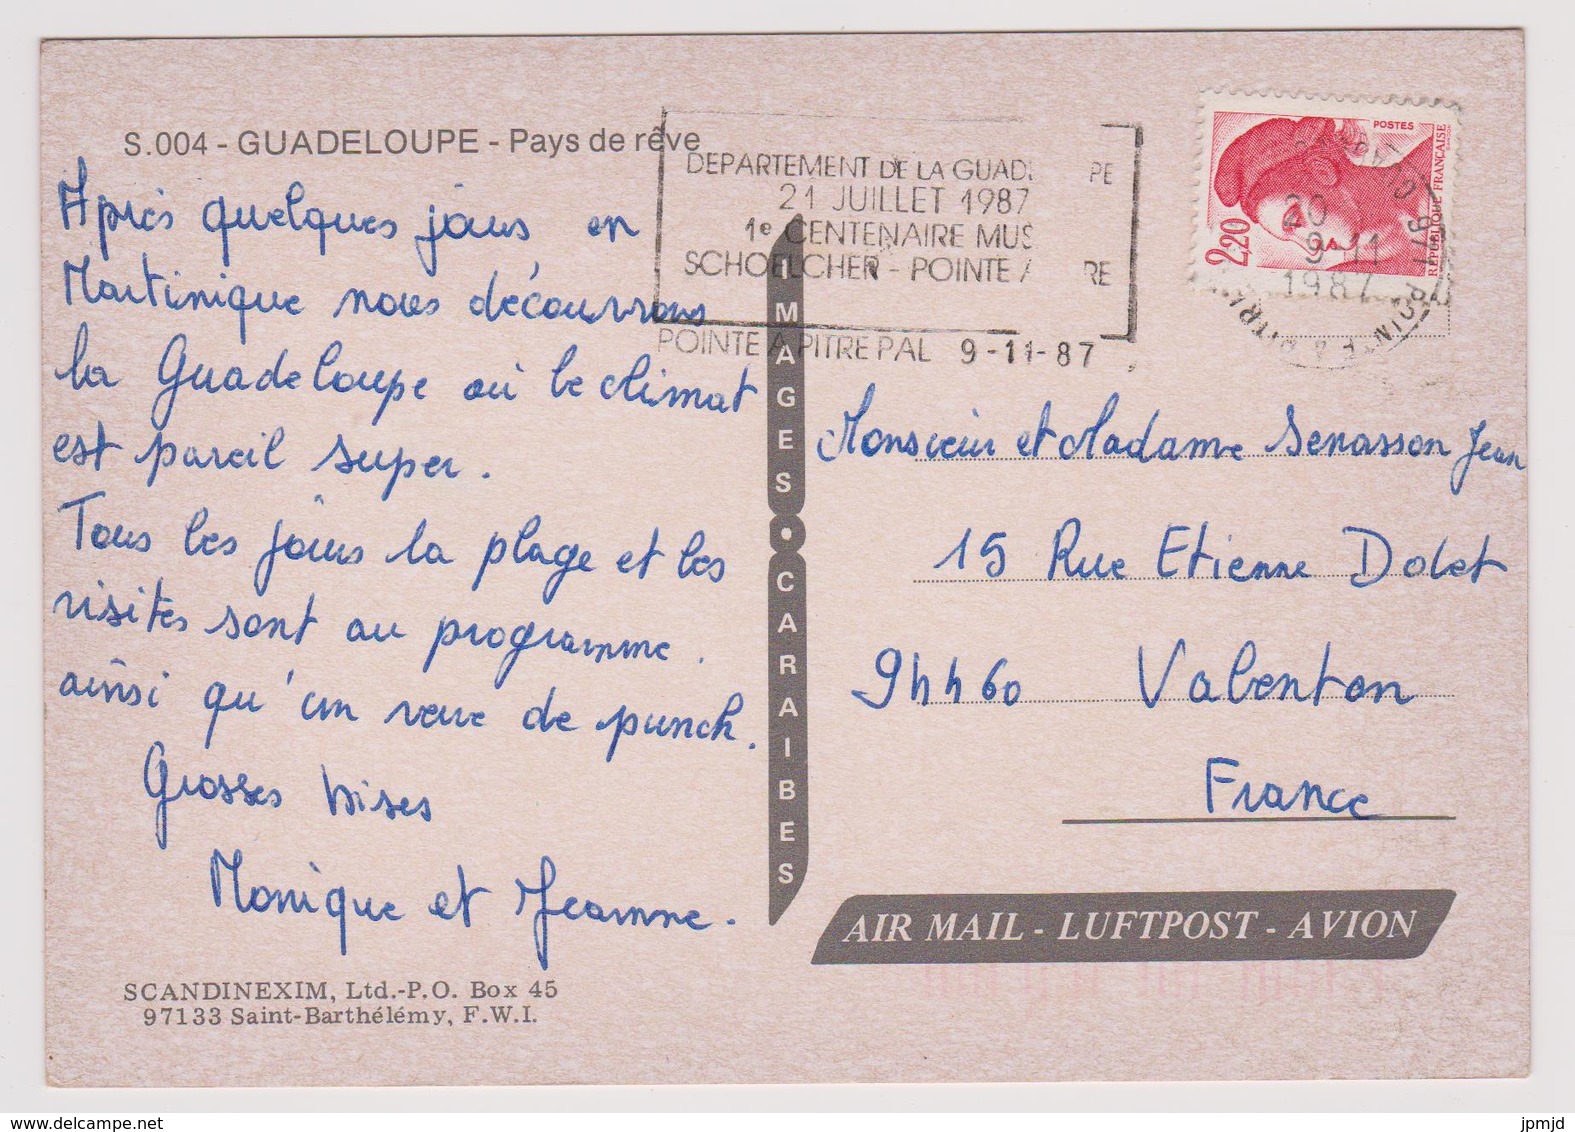 S.004 - GUADELOUPE - Pays de rêve
Après quelques jours en
Martinique nous découvrons
la Guadeloupe où le climat
est pareil super.
Tous les jours la plage et les
visites sont au programme.
ainsi qu'un verre de punch.
Grosses bises
Monique et Jeanne.
SCANDINEXIM, Ltd.-P.O. Box 45
97133 Saint-Barthélémy, F.W.I.
IMAGES • CARAIBES
DEPARTEMENT DE LA GUAD PE
21 JUILLET 1987
1e CENTENAIRE MUS
SCHOELCHER - POINTE A RE
POINTE A PITRE PAL 9-11-87
POSTES
REPUBLIQUE FRANÇAISE
2,20
20
9-11
1987
971 POINTE A PITRE
Monsieur et Madame Senasson Jean
15 Rue Etienne Dolet
94460 Valenton
France
AIR MAIL - LUFTPOST - AVION
www.delcampe.net
jpmjd